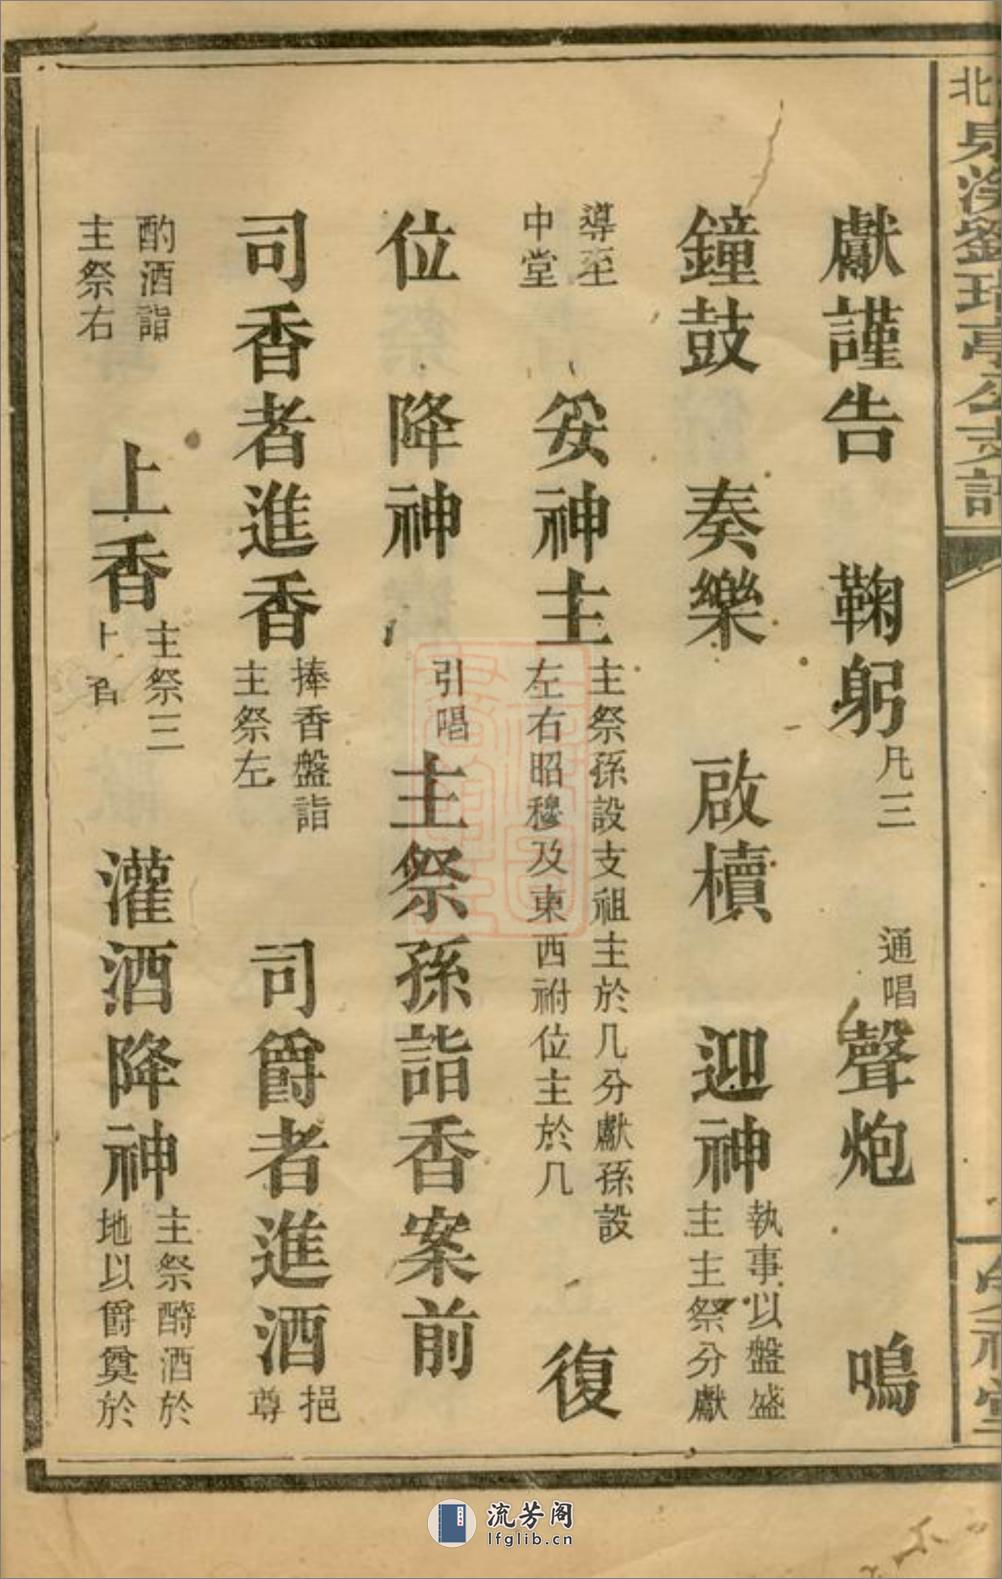 獻謹告　鞠躬凡三　通唱聲炮　鳴
鐘鼓　奏樂　啟櫝　迎神執事以盤盛主主祭分獻
導至中堂　安神主主祭孫設支祖主於几分獻孫設左右昭穆及東西祔位主於几　復
位　降神　引唱主祭孫詣香案前
司香者進香捧香盤詣主祭左　司爵者進酒挹尊
酌酒詣主祭右　上香主祭三上香　灌酒降神主祭酹酒於地以爵奠於
流芳阁
lfglib.cn